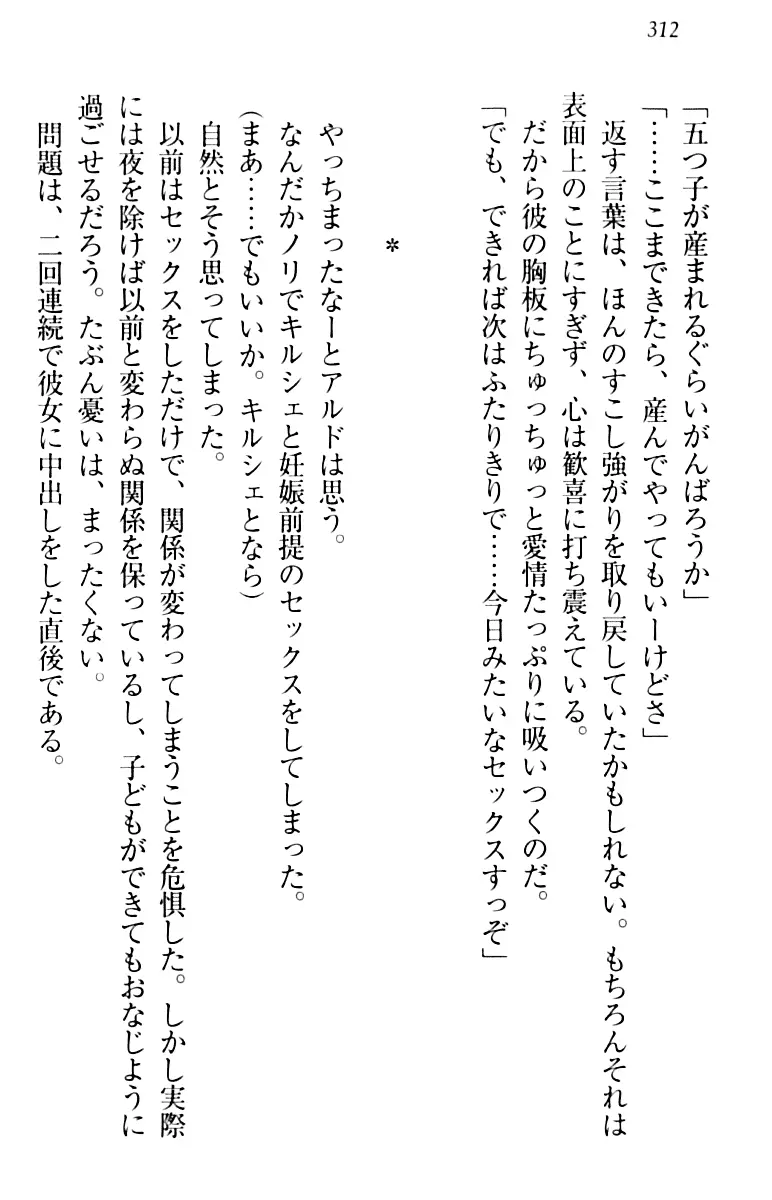 312
「五つ子が産まれるぐらいがんばろうか」
「……ここまできたら、産んでやってもいーけどさ」
返す言葉は、ほんのすこし強がりを取り戻していたかもしれない。もちろんそれは
表面上のことにすぎず、心は歓喜に打ち震えている。
だから彼の胸板にちゅっちゅっと愛情たっぷりに吸いつくのだ。
「でも、できれば次はふたりきりで……今日みたいなセックスすっぞ」
＊
やっちまったなーとアルドは思う。
なんだかノリでキルシェと妊娠前提のセックスをしてしまった。
(まあ……でもいいか。キルシェとなら)
自然とそう思ってしまった。
以前はセックスをしただけで、関係が変わってしまうことを危惧した。しかし実際
には夜を除けば以前と変わらぬ関係を保っているし、子どもができてもおなじように
過ごせるだろう。たぶん憂いは、まったくない。
問題は、二回連続で彼女に中出しをした直後である。